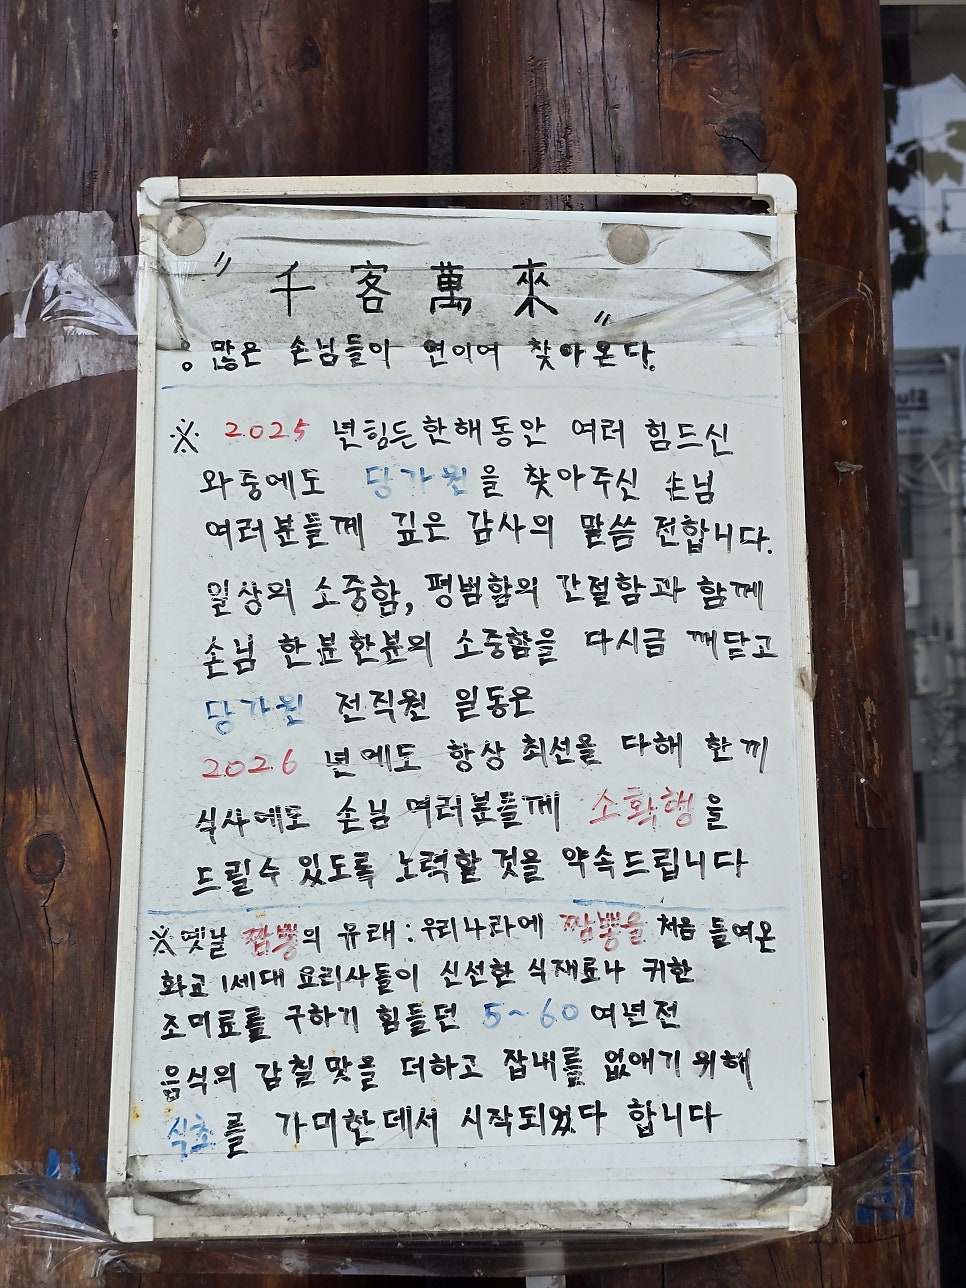 "千客萬來"
○ 많은 손님들이 연이어 찾아온다.
※ 2025 년힘든한해동안 여러 힘드신
와중에도 당가원을 찾아주신 손님
여러분들께 깊은 감사의 말씀 전합니다.
일상의 소중함, 평범함의 간절함과 함께
손님 한분한분의 소중함을 다시금 깨닫고
당가원 전직원 일동은
2026 년에도 항상 최선을 다해 한끼
식사에도 손님여러분들께 소확행을
드릴수 있도록 노력할것을 약속드립니다
※옛날 짬뽕의 유래 : 우리나라에 짬뽕을 처음 들여온
화교 1세대 요리사들이 신선한 식재료나 귀한
조미료를 구하기 힘들던 5~60 여년전
음식의 감칠맛을 더하고 잡내를 없애기위해
식초를 가미한데서 시작되었다 합니다